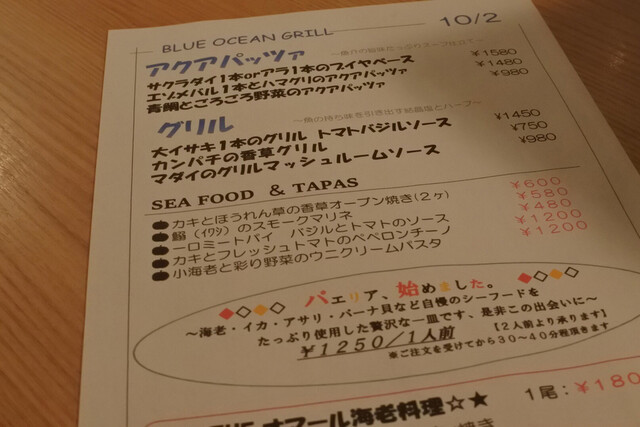 BLUE OCEAN GRILL 10/2
アクアパッツァ ～魚介の旨味たっぷりスープ仕立て～
サクラダイ1本orアラ1本のブイヤベース ¥1580
エゾメバル1本とハマグリのアクアパッツァ ¥1480
青鯛とごろごろ野菜のアクアパッツァ ¥980
グリル ～魚の持ち味を引き出す
大イサキ1本のグリル トマトバジルソース ¥1450
カンパチの香草グリル ¥750
マダイのグリルマッシュルームソース ¥980
SEA FOOD & TAPAS
カキとほうれん草の香草オーブン焼き(2ヶ) ¥600
鰯(イワシ)のスモークマリネ ¥580
一口ミートパイ バジルとトマトのソース ¥480
カキとフレッシュトマトのペペロンチーノ ¥1200
小海老と彩り野菜のウニクリームパスタ ¥1200
◆◇◆◇ パエリア、始めました。 ◆◇◆◇
～海老・イカ・アサリ・パーナ貝など自慢のシーフードを
たっぷり使用した贅沢な一皿です、是非この出会いに～
¥1250/1人前 【2人前より承ります】
※ご注文を受けてから30～40分程頂きます
オマール海老料理☆★ 1尾:¥180
焼き